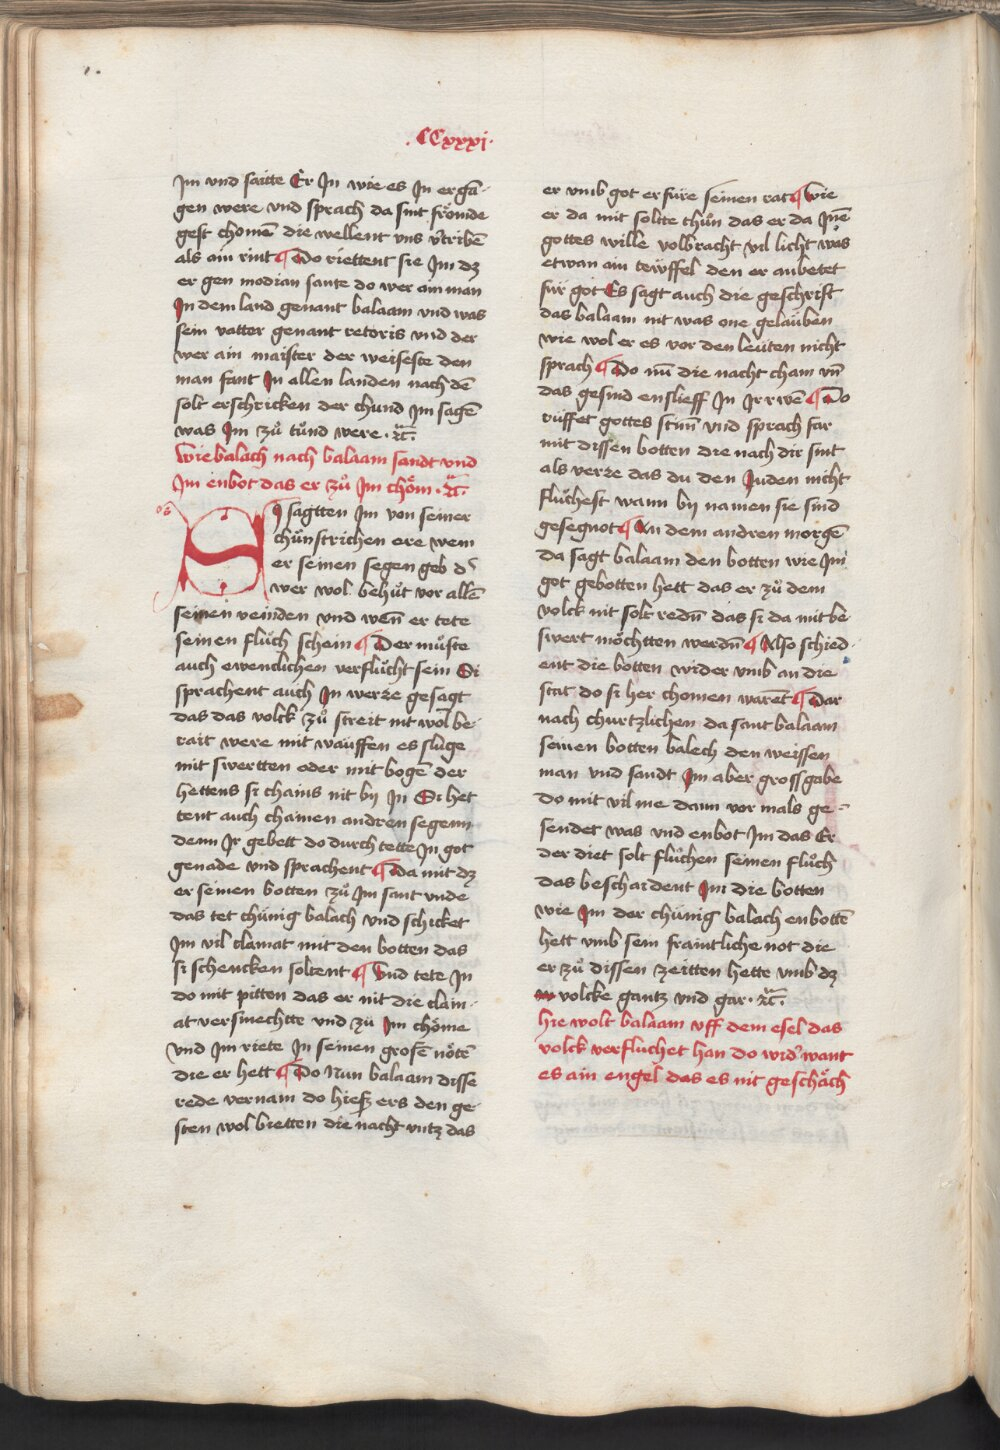 .CCxxxj.
Jm vnd saitte Er Jn wie es Jn ergā-
gen were vnd sprach da sint frömde
gest chomē die wellent vns v̾tribē
als ain rint ¶ Do riettent sie Jm dz
er gen modian sante do wer ain man
Jn dem land genant balaam vnd was
sein vatter genant retoris vnd der
wer ain maister der weiseste den
man fant Jn allen landen nach dē
solt erschricken der chund Jm sagē
was Jm zů tůnd were · ꝛc̃.
Wie balach nach balaam sandt vnd
Jm enbot das er zů Jm chöm · ꝛc̃.
SJ sagtten Jm von seiner
chünstrichen ere wem
er seinen segen geb d̾
wer wol behůt vor allē
seinen veinden vnd wen̄ er tete
seinen flůch schein ¶ Der můste
auch ewenclichen verflůcht sein Si
sprachent auch Jn werre gesagt
das das volck zů streit nit wol be-
rait were mit wauffen es sluge
mit swertten oder mit bogē der
hettens si chains nit bij Jn Si het
tent auch chainen andren segenn
denn Jr gebett do durch tette Jn got
genade vnd sprachent ¶ Da mit dz
er seinen botten zů Jm sant vnde
das tet chünig balach vnd schicket
Jm vil clainat mit den botten das
si schencken soltent ¶ Vnd tete Jn
do mit pitten das er nit die clain-
at versmechtte vnd zů Jm chöme
vnd Jm riete Jn seinen grosē nötē
die er hett ¶ Do Nun balaam disse
rede vernam do hiesz ers den ge-
sten wol bietten die nacht vntz das
er vmb got er füre seinen rat ¶ Wie
er da mit sollte thůn das er da Jnē
gottes wille volbracht vil licht was
etwan ain tewffel den er anbetet
für got Es sagt auch die geschrift
das balaam nit was one gelauben
wie wol er es vor den leüten nicht
sprach ¶ Do nū die nacht cham vn̄
das gesind enslieff Jn Jr rwē ¶ Do
rüffet gottes stim̄ vnd sprach far
mit dissen botten die nach dir sint
als verre das du den Juden nicht
flůchest wann bij namen sie sind
gesegnot ¶ An dem andren morgē
da sagt balaam den botten wie Jm
got gebotten hett das er zů dem
volck nit solt redn̄ das si da mit be
swert möchtten werdn̄ ¶ Also schied-
ent die botten wider vmb an die
stat do si her chomen warēt ¶ Dar
nach churtzlichen da sant balaam
seinen botten balech den weissen
man vnd sandt Jm aber gross gabe
do mit vil me dann vor mals ge-
sendet was vnd enbot Jm das Er
der diet solt flůchen seinen flůch
das beschaident Jm die botten
wie Jm der chünig balach enbottē
hett vmb sein fraintliche not die
er zů dissen zeitten hette vmb dz
volcke gantz vnd gar · ꝛc̃.
hie wolt balaam vff dem esel das
volck verfluchet han do wid̾ want
es ain engel das es nit geschäch